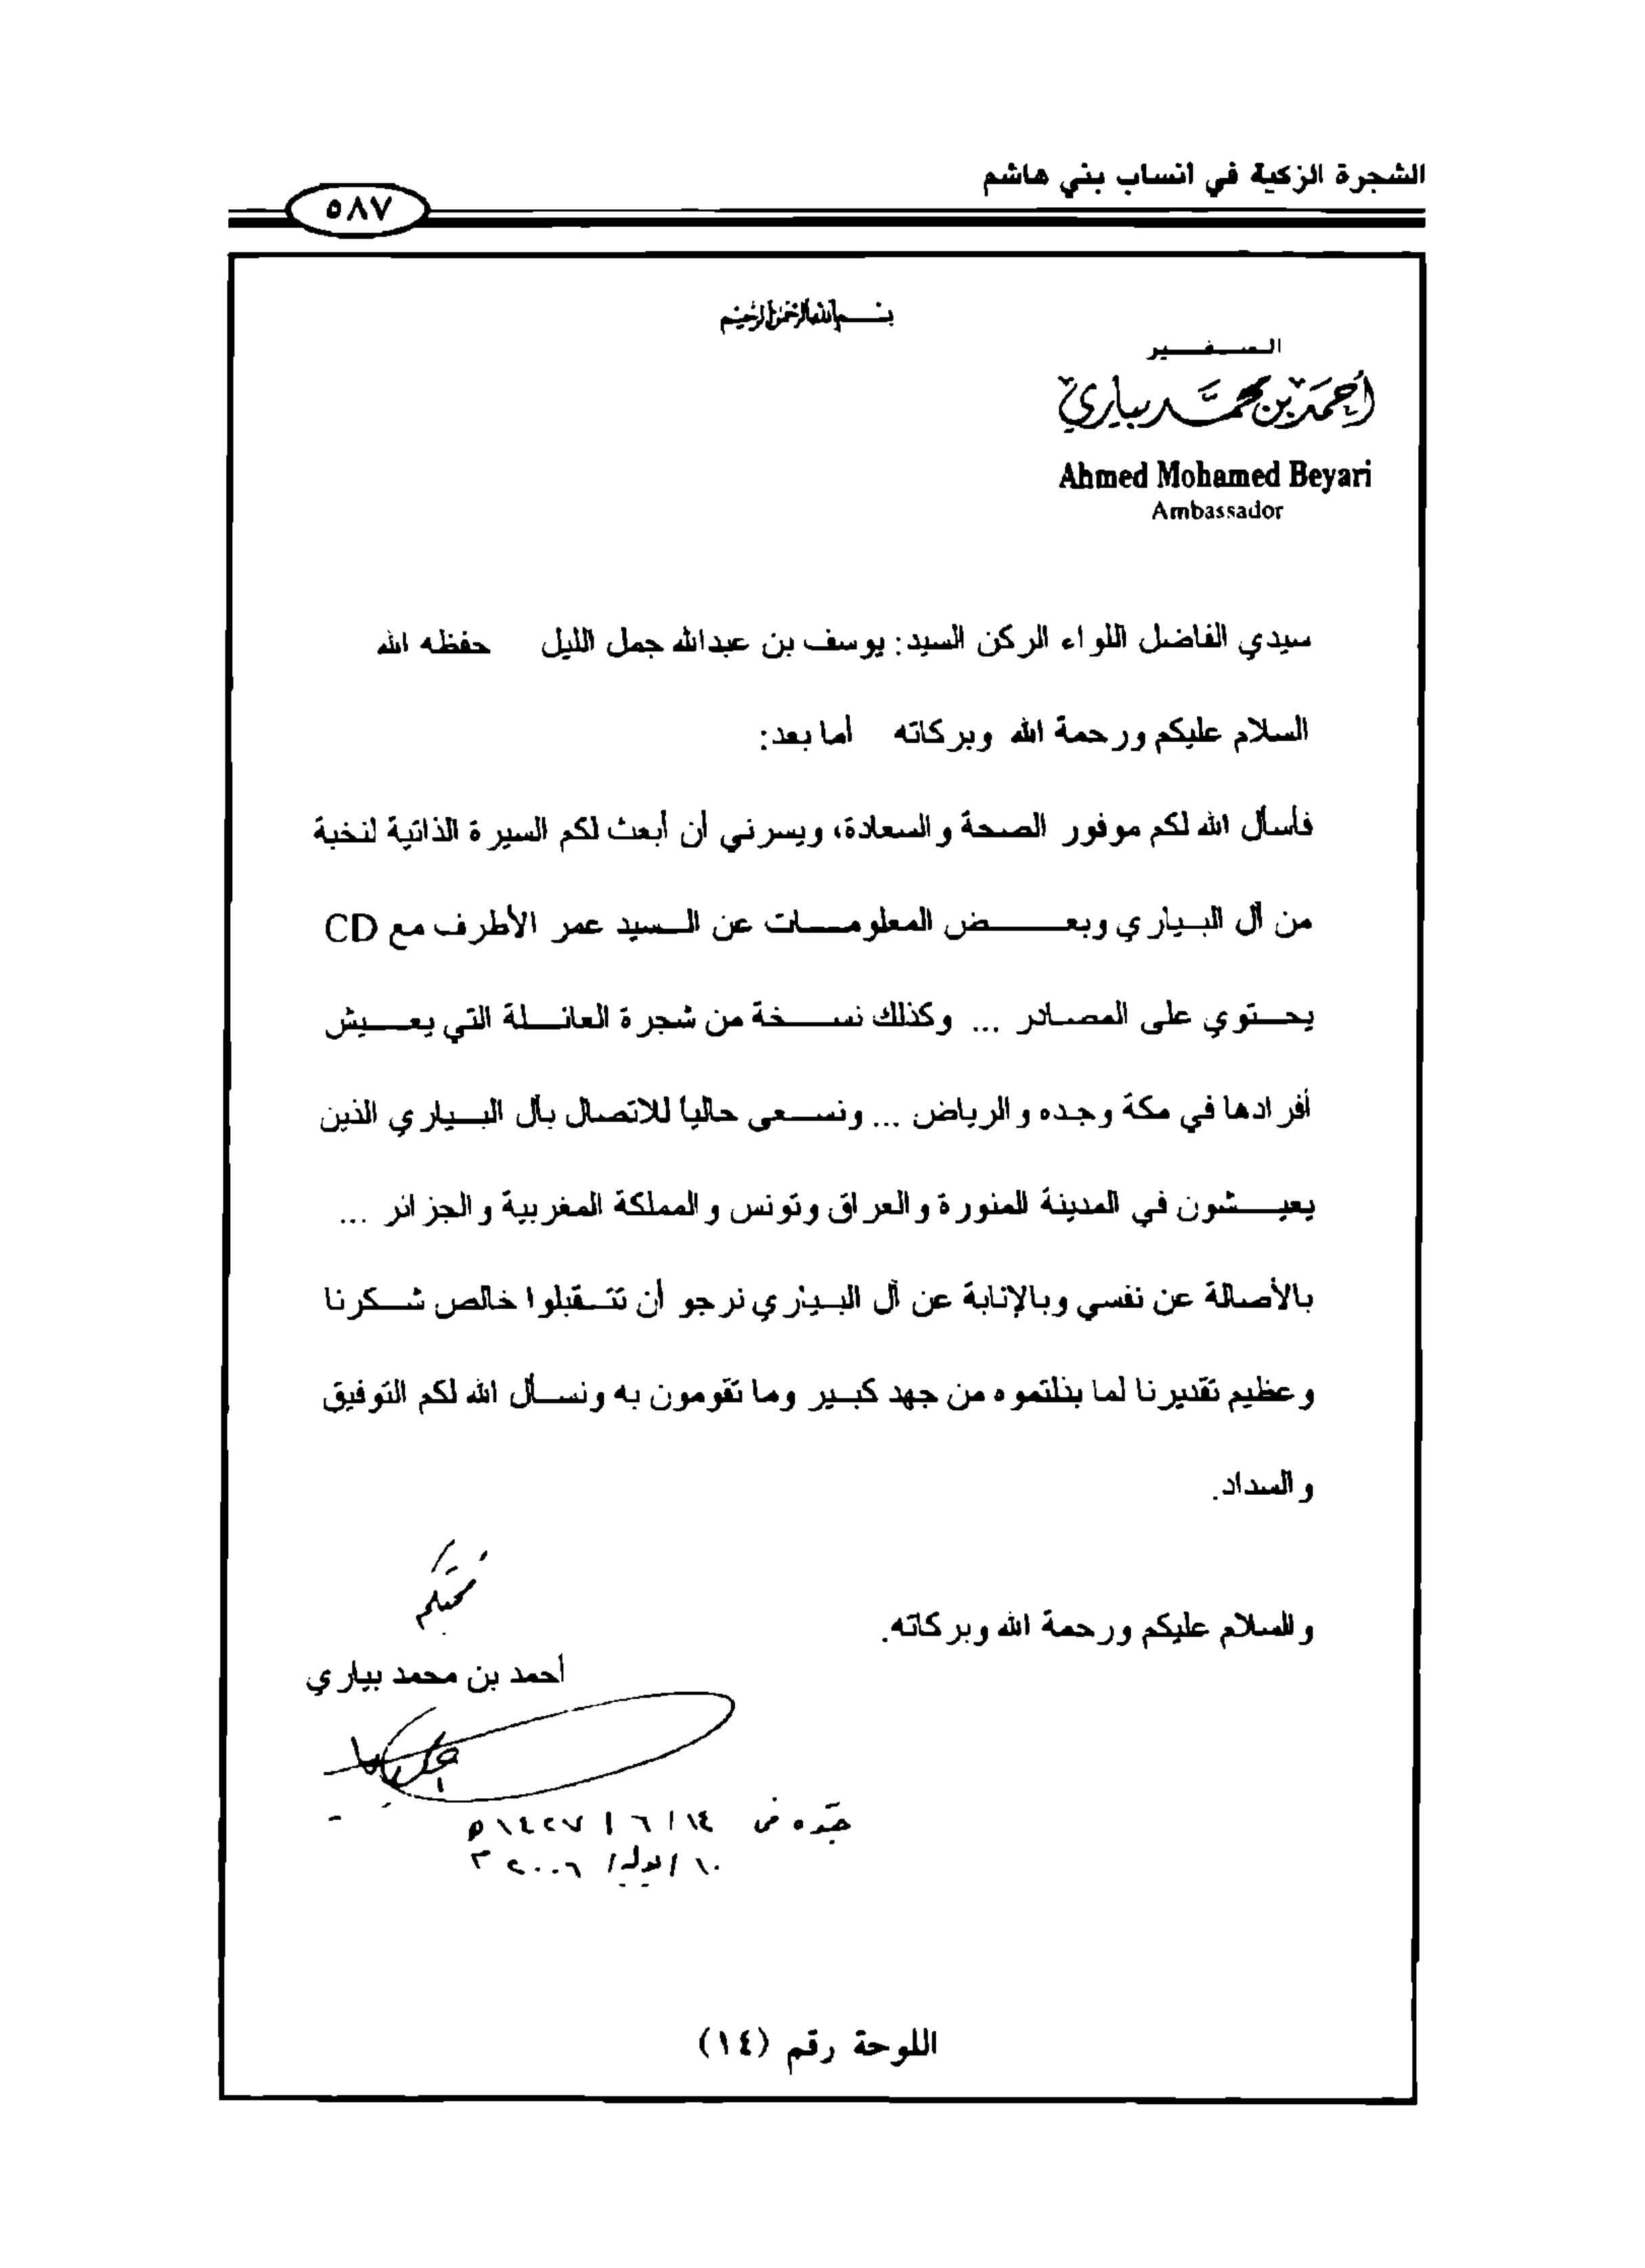 الشجرة الزكية في انساب بني هاشم
٥٨٧
بسم الله الرحمن الرحيم
السفير
أحمد بن محمد بياري
Ahmed Mohamed Beyari
Ambassador
سيدي الفاضل اللواء الركن السيد: يوسف بن عبدالله جمل الليل حفظه الله
السلام عليكم ورحمة الله وبركاته أما بعد:
فأسأل الله لكم موفور الصحة والسعادة، ويسرني أن أبعث لكم السيرة الذاتية لنخبة
من آل البياري وبعض المعلومات عن السيد عمر الأطرف مع CD
يحتوي على المصادر ... وكذلك نسخة من شجرة العائلة التي يعيش
أفرادها في مكة وجده والرياض ... ونسعى حاليا للاتصال بآل البياري الذين
يعيشون في المدينة المنورة والعراق وتونس والمملكة المغربية والجزائر ...
بالأصالة عن نفسي وبالإنابة عن آل البياري نرجو أن تتقبلوا خالص شكرنا
وعظيم تقديرنا لما بذلتموه من جهد كبير وما تقومون به ونسأل الله لكم التوفيق
والسداد.
والسلام عليكم ورحمة الله وبركاته.
محبكم
أحمد بن محمد بياري
جده في ١٤/٦/١٤٢٧ه
١٠/يوليه/٢٠٠٦م
اللوحة رقم (١٤)